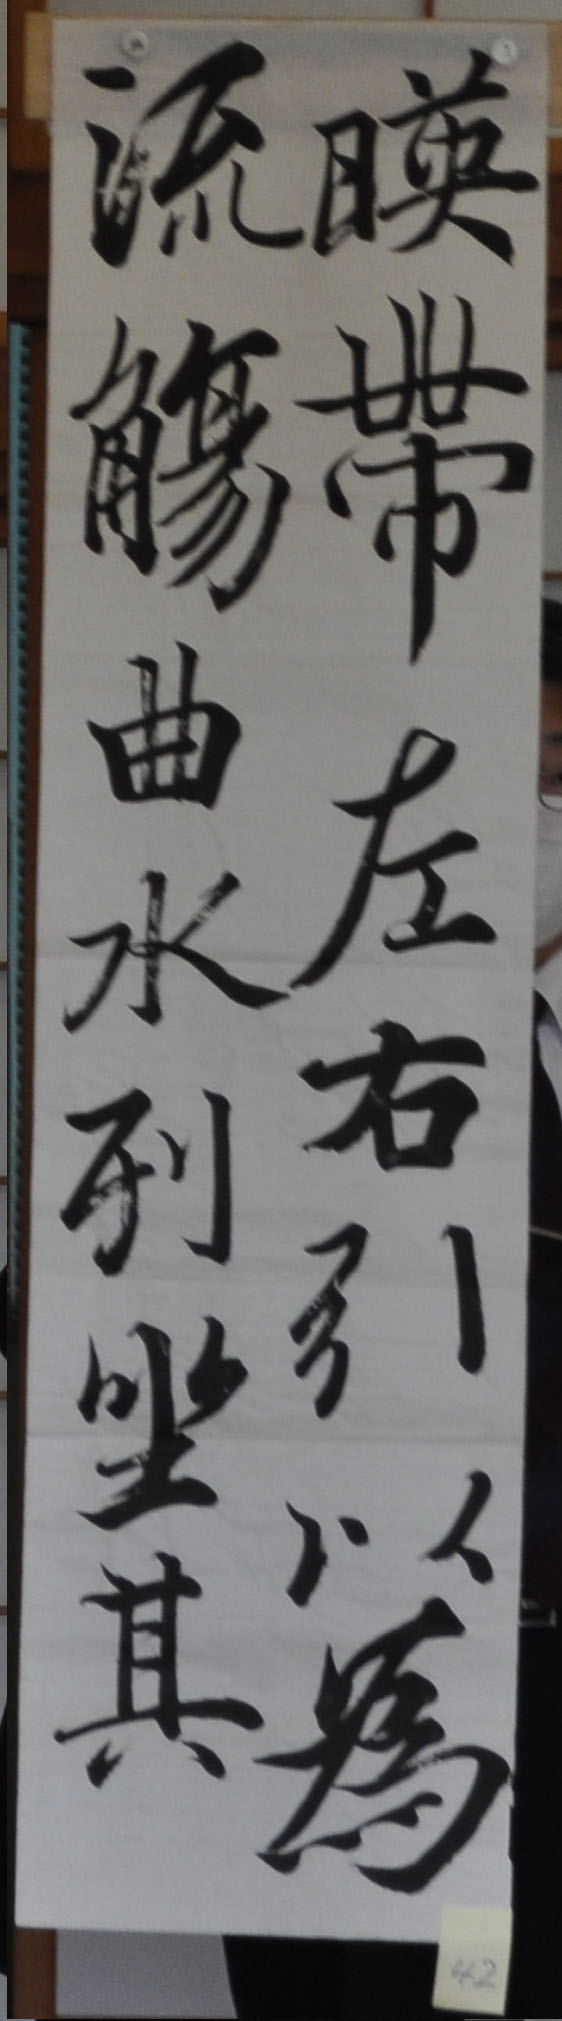 暎帶左右引以為
流觴曲水列坐其
42